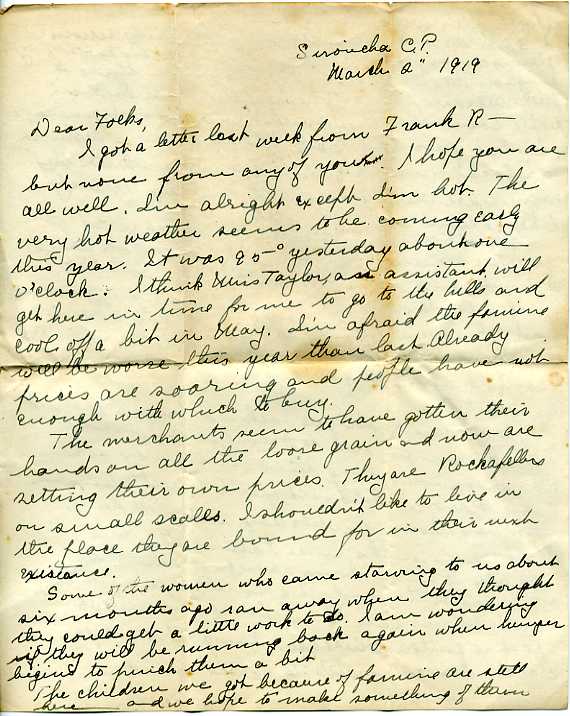 Sironcha C.P.
March 2" 1919
Dear Folks,
I got a letter last week from Frank R—
but none from any of you. I hope you are
all well. I'm alright except I'm hot. The
very hot weather seems to be coming early
this year. It was 95° yesterday about one
O'clock. I think Miss Taylor, an assistant, will
get here in time for me to go to the hills and
cool off a bit in May. I'm afraid the famine
will be worse this year than last. Already
prices are soaring and people have not
enough with which to buy.
The merchants seem to have gotten their
hands on all the loose grain and now are
setting their own prices. They are Rockafellers
on small scalls. I shouldn't like to live in
the place they are bound for in their next
existance.
Some of the women who came starving to us about
six months ago ran away when they thought
they could get a little work to do. I am wondering
if they will be running back again when hunger
begins to pinch them a bit
The children we got because of famine are still
here and we hope to make something of them